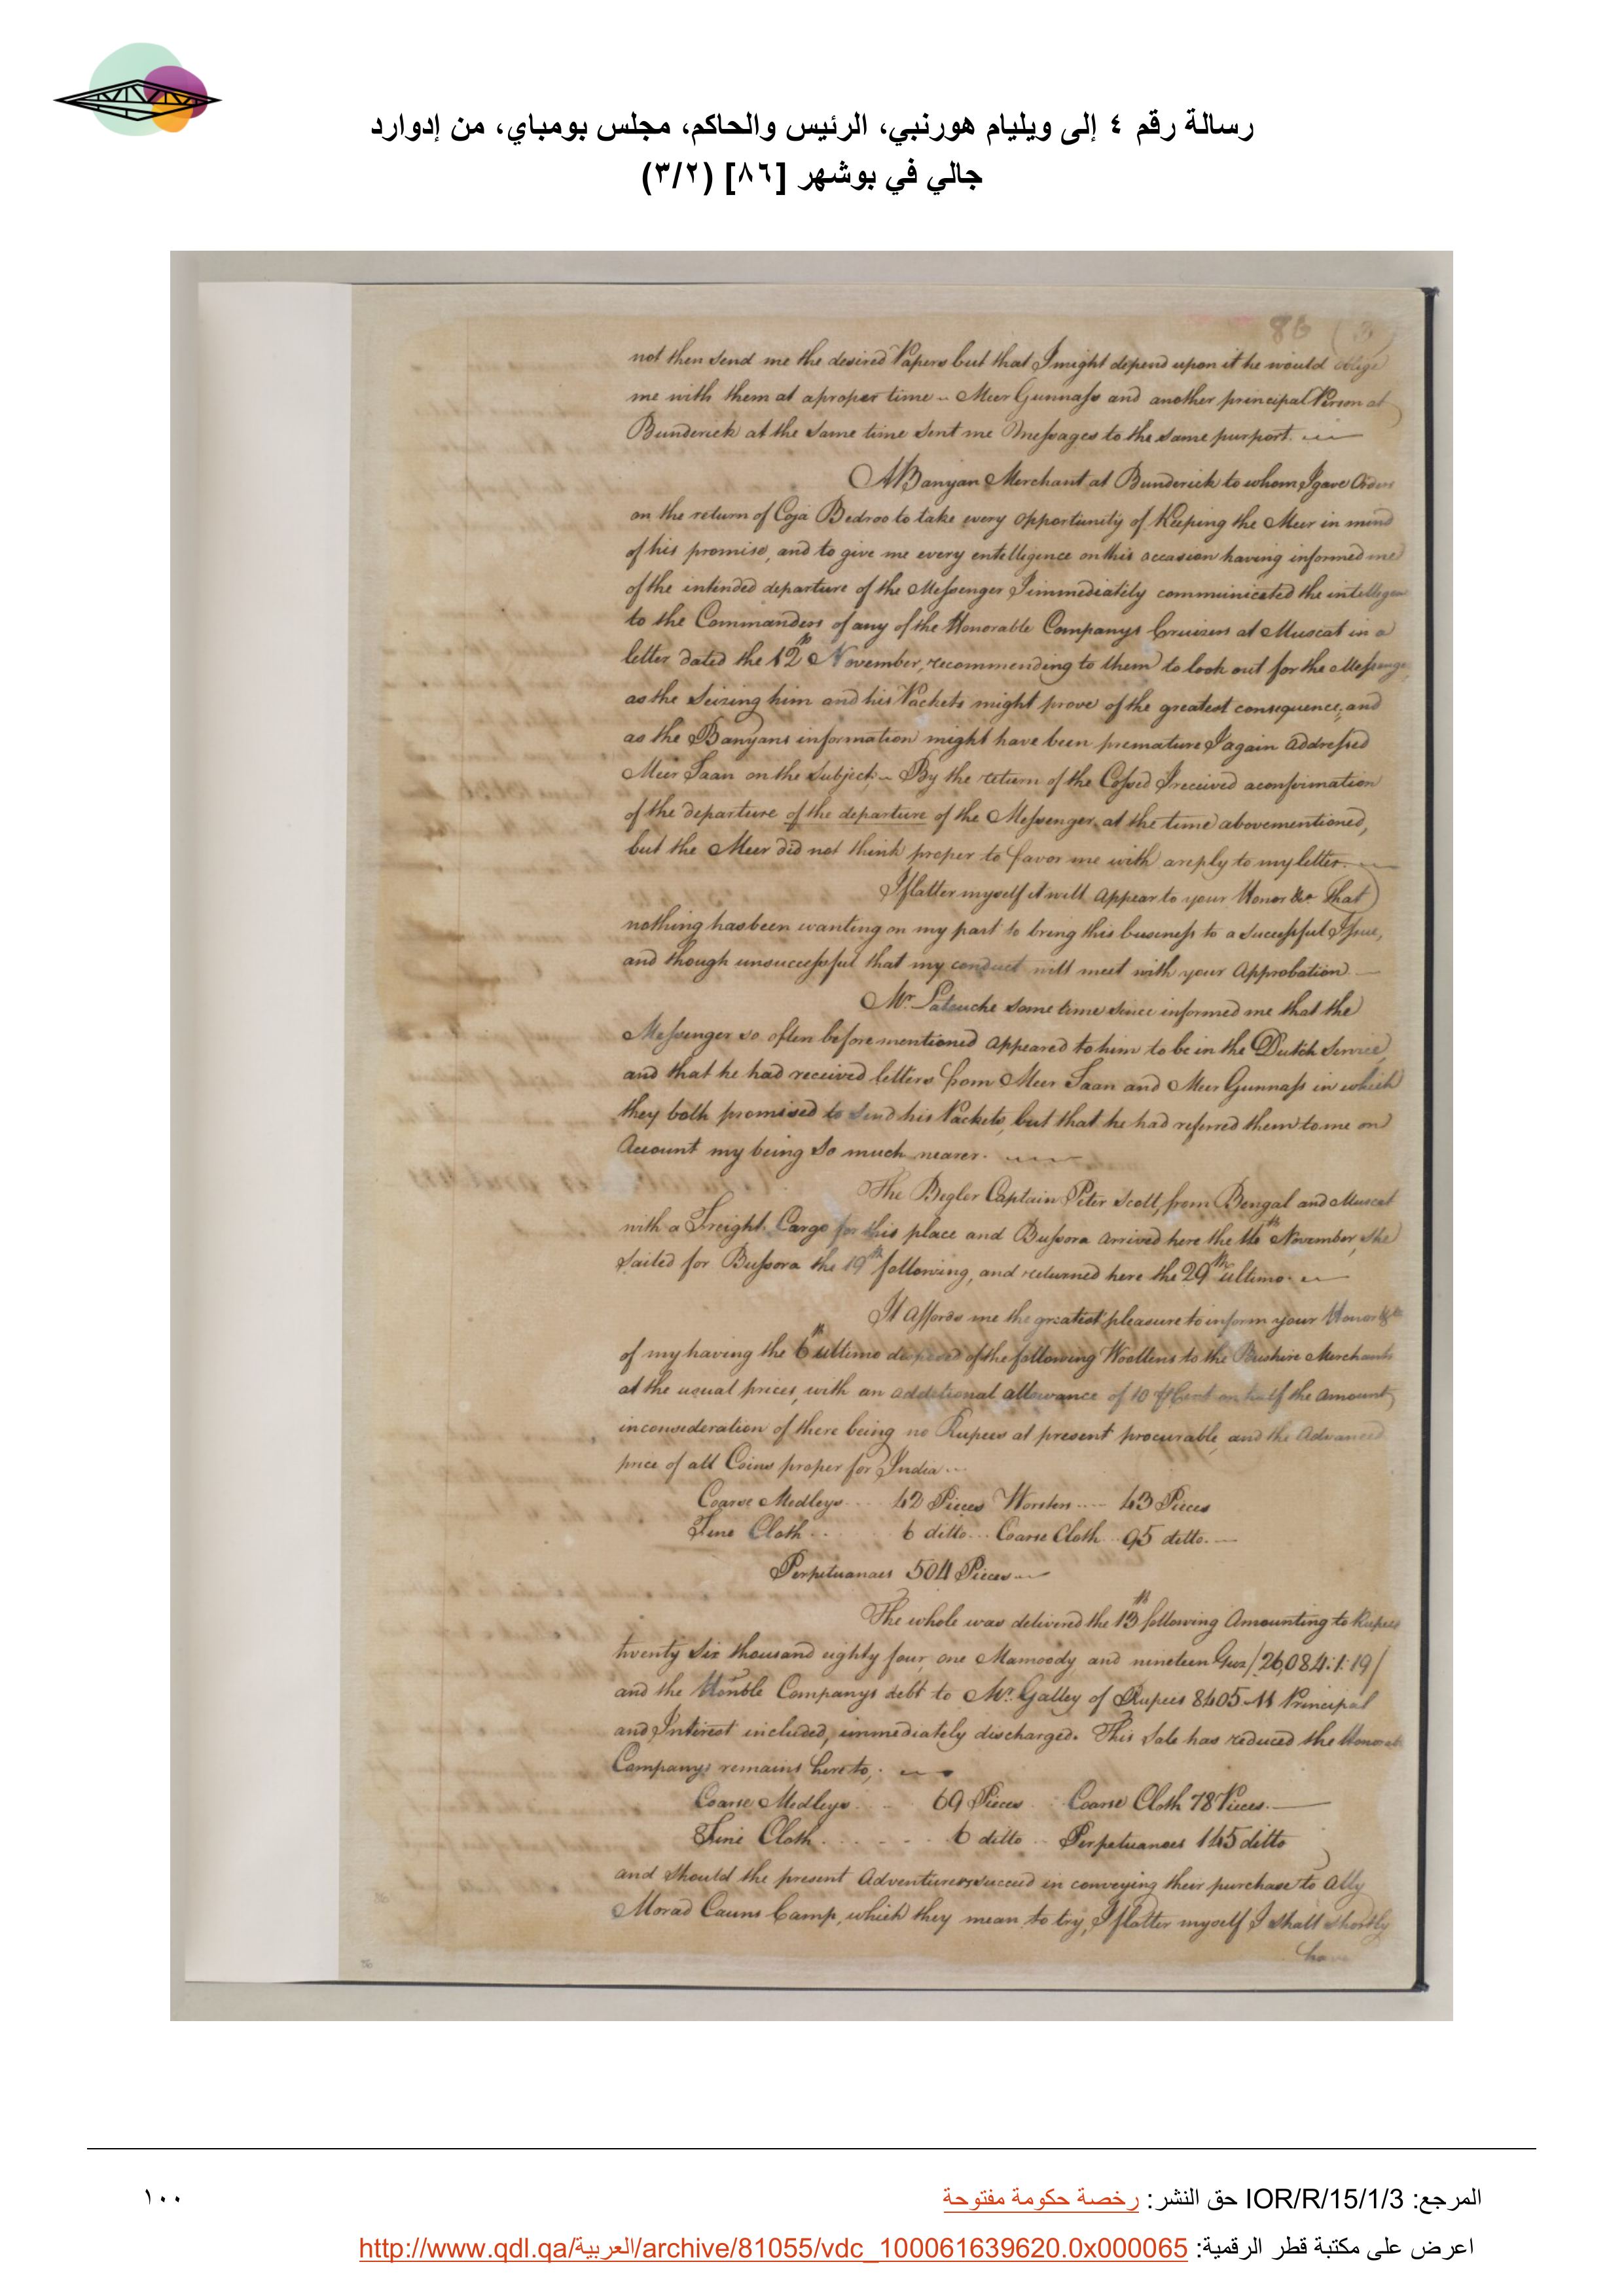 رسالة رقم ٤ إلى ويليام هورنبي، الرئيس والحاكم، مجلس بومباي، من إدوارد
جالي في بوشهر [٨٦] (٣/٢)
86 (3)
not then send me the desired Papers but that I might depend upon it he would oblige
me with them at a proper time - Meer Gunnass and another principal Person at
Bunderick at the same time sent me Messages to the same purport.
A Banyan Merchant at Bunderick to whom I gave Orders
on the return of Coja Bedroo to take every opportunity of Keeping the Meer in mind
of his promise, and to give me every entelligence on this occasion having informed me
of the intended departure of the Messenger I immediately communicated the intelligence
to the Commanders of any of the Honorable Companys Cruizers at Muscat in a
letter dated the 12th November, recommending to them to look out for the Messenger
as the Seizing him and his Packets might prove of the greatest consequence, and
as the Banyans information might have been premature I again addressed
Meer Saan on the Subject; - By the return of the Cossed I received a confirmation
of the departure of the departure of the Messenger at the time abovementioned,
but the Meer did not think proper to favor me with a reply to my letter.
I flatter myself it will appear to your Honor &ca that
nothing has been wanting on my part to bring this business to a successful Issue,
and though unsuccessful that my conduct will meet with your Approbation.
Mr. Latouche some time since informed me that the
Messenger so often beforementioned appeared to him to be in the Dutch Service,
and that he had received letters from Meer Saan and Meer Gunnass in which
they both promised to send his Packets, but that he had referred them to me on
Account my being so much nearer.
The Begler Captain Peter Scott, from Bengal and Muscat
with a Freight Cargo for this place and Bussora arrived here the November, she
sailed for Bussora the 19th following, and returned here the 29th ultimo.
It affords me the greatest pleasure to inform your Honor &ca
of my having the 6th ultimo disposed of the following Woollens to the Bushire Merchants
at the usual prices, with an additional allowance of 10 Pr Cent on half the amount,
in consideration of there being no Rupees at present procurable, and the Advanced
price of all Coins proper for India..
Coarse Medleys... 42 Pieces Worsten.... 43 Pieces
Fine Cloth... 6 ditto... Coarse Cloth... 95 ditto.
Perpetuanoes 504 Pieces
The whole was delivered the 13th following Amounting to Rupees
twenty six thousand eighty four, one Mamoody and nineteen Guz /26,084:1:19/
and the Honble Companys debt to Mr. Galley of Rupees 8405 - 11 Principal
and Interest included, immediately discharged. This Sale has reduced the Honorable
Companys remains here to,
Coarse Medleys.... 69 Pieces.. Coarse Cloth 78 Pieces.
Fine Cloth...... 6 ditto.. Perpetuanoes 145 ditto
and should the present Adventurers succeed in conveying their purchase to Ally
Morad Cauns Camp, which they mean to try, I flatter myself I shall shortly
have
المرجع: IOR/R/15/1/3 حق النشر: رخصة حكومة مفتوحة
١٠٠
اعرض على مكتبة قطر الرقمية: http://www.qdl.qa/العربية/archive/81055/vdc_100061639620.0x000065